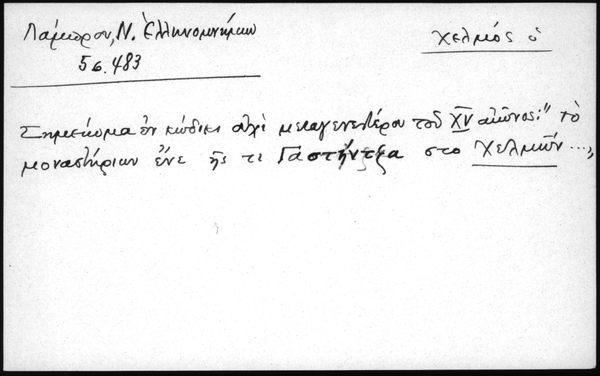 Λάμπρου, Ν. Ἑλληνομνήμων
χελμός ὁ
5 σ. 483
Σημείωμα ἐν κώδικι οὐχὶ μεταγενεστέρου τοῦ XV αἰῶνος: "τὸ
μοναστήριων ἔνε ἦς τι στο Χελμὼν ...,